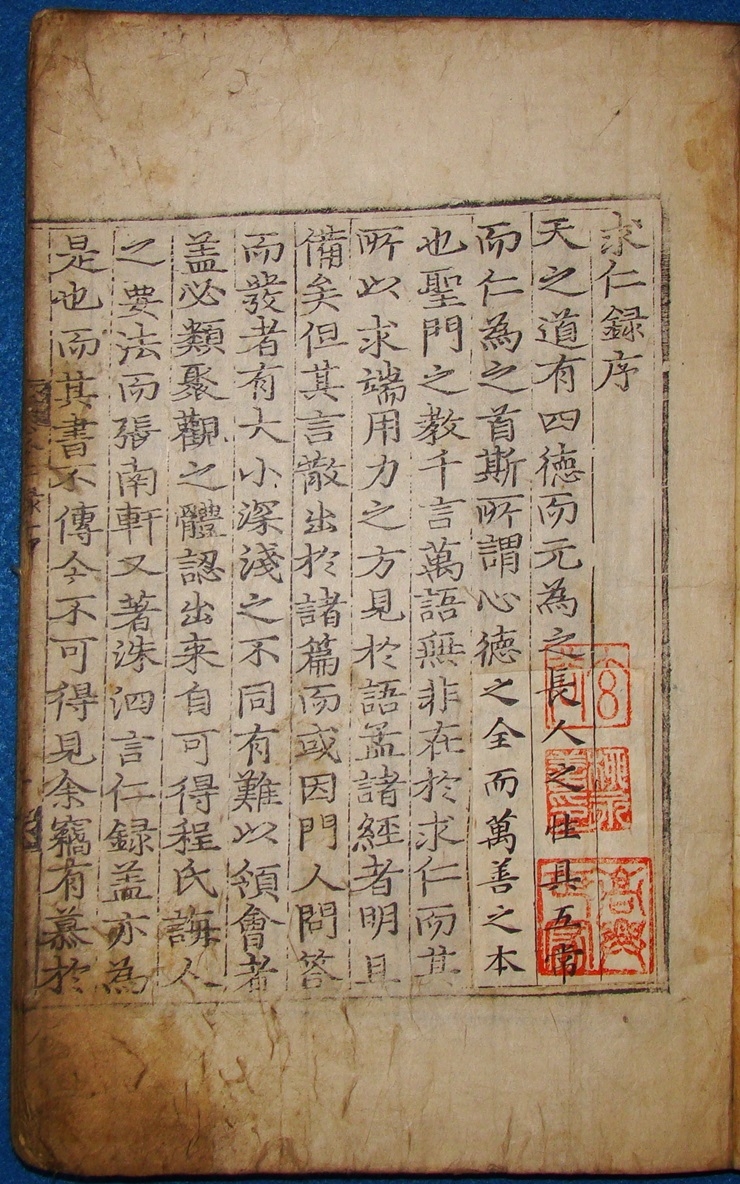 求仁録序
天之道有四德而元為之長人之性具五常
而仁為之首斯所謂心德之全而萬善之本
也聖門之教千言萬語無非在於求仁而其
所以求端用力之方見於語孟諸經者明且
備矣但其言散出於諸篇而或因門人問答
而發者有大小深淺之不同有難以領會者
盖必類聚觀之體認出来自可得程氏誨人
之要法而張南軒又著洙泗言仁録盖亦為
是也而其書不傳今不可得見余竊有慕於